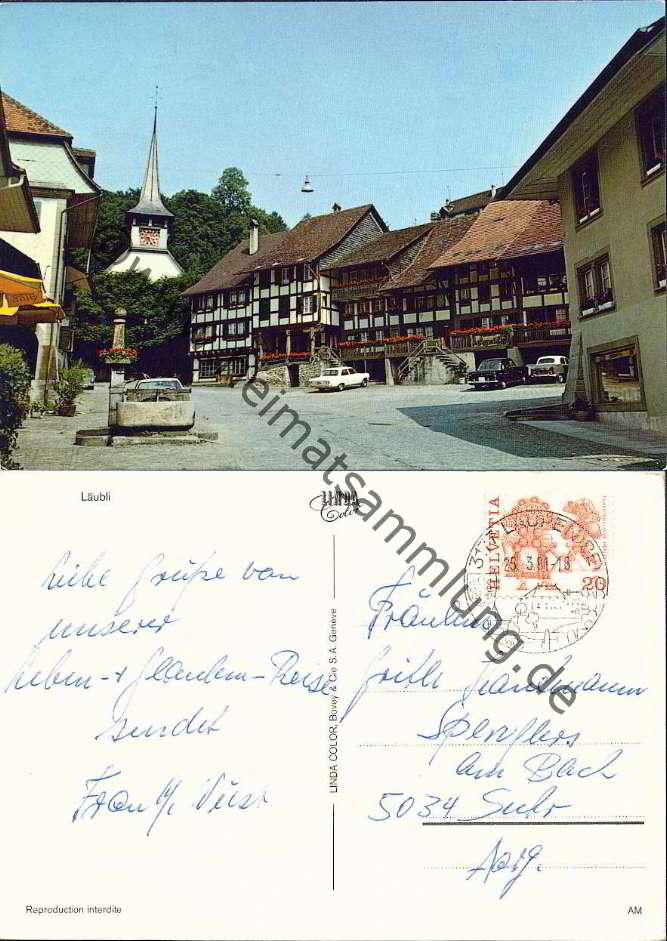 heimatsammlung.de
Läubli
LINDA
Color
HELVETIA
20
LAUPEN
25. 3.81-18
Liebe Grüße von
unserer
Leben-+ Glauben-Reise
sendet
Frau
LINDA COLOR, Bovey & Cie S.A. Genève
Fräulein
Spenglers
am Bach
5034 Suhr
Aarg.
Reproduction interdite
AM